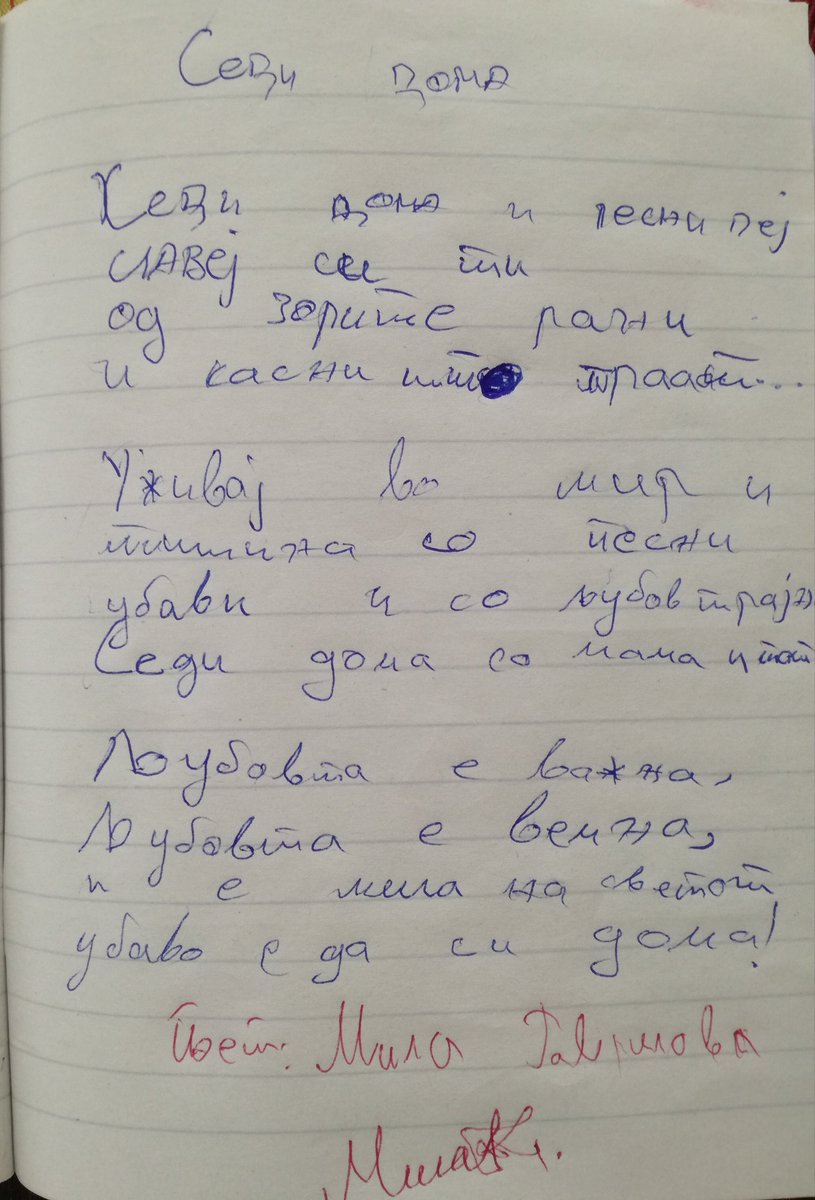 Седи дома
Седи дома и песни пеј
славеј си ти
од зорите рани
и касни што траат...
Уживај во мир и
тишина со песни
убави и со љубов трајна
Седи дома со мама и тат
Љубовта е важна,
Љубовта е вечна,
и е мила на светот
убаво е да си дома!
Поет: Мила Гаврилова